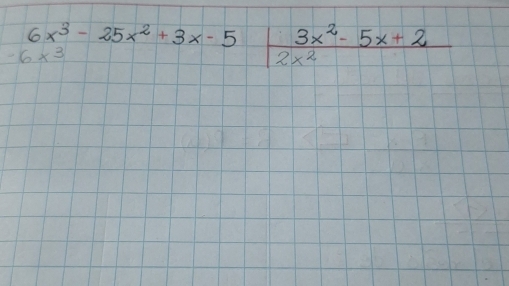 6x³ - 25x² + 3x - 5 | 3x² - 5x + 2
-6x³ | 2x²